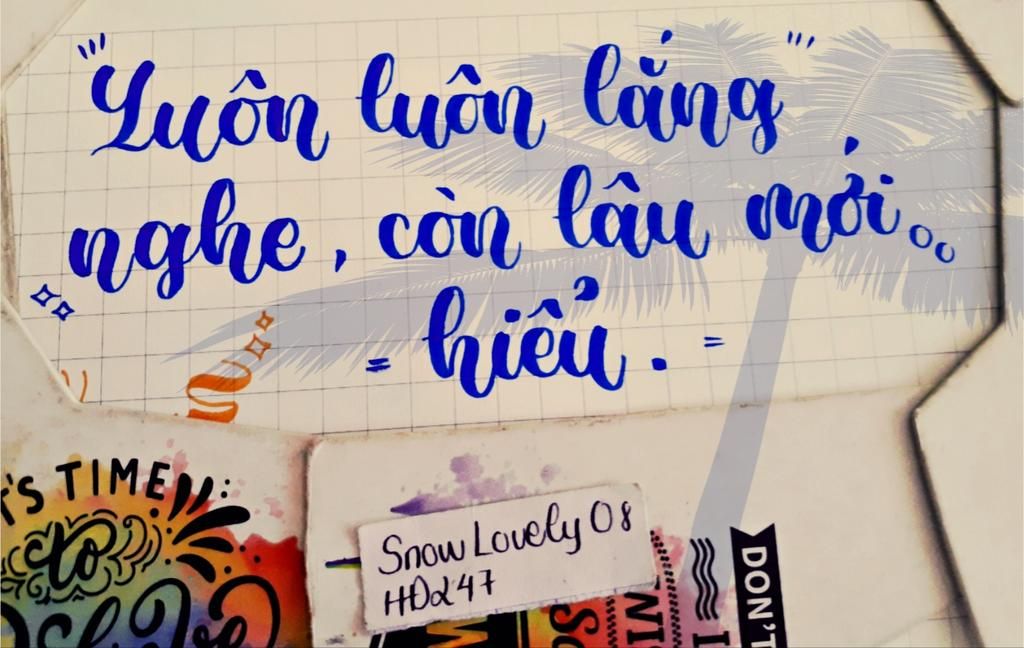 "Luôn luôn lắng"
nghe, còn lâu mới...
= hiểu. =
'S TIME
to
Snow Lovely 08
HDα47
DON'T